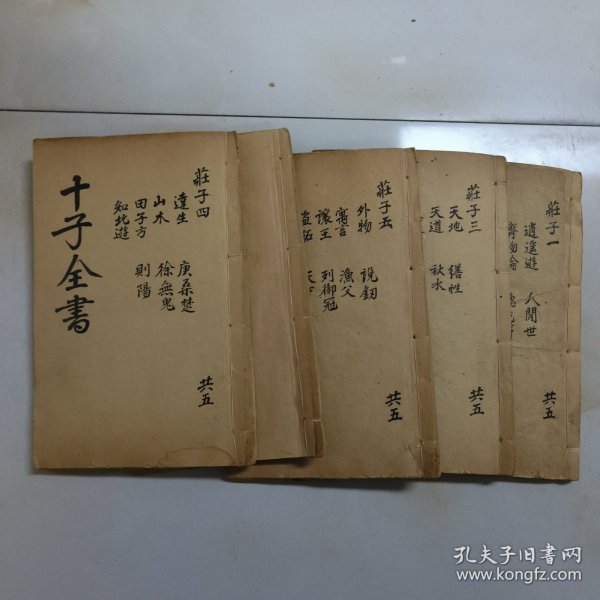 十子全書
莊子四
達生 庚桑楚
山木 徐無鬼
田子方 則陽
知北遊
共五
莊子五
外物 說劍
寓言 漁父
讓王 列御冠
盜跖 天下
共五
莊子三
天地 繕性
天道 秋水
共五
莊子一
逍遙遊 人間世
齊物論
共五
孔夫子旧书网
www.kongfz.com